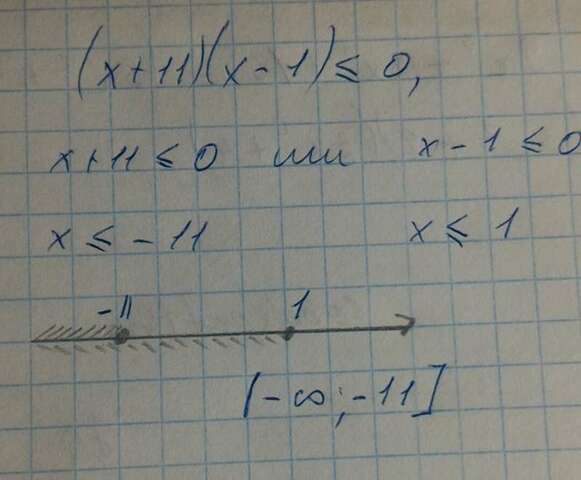 (x+11)(x-1)≤0,
x+11≤0 или x-1≤0
x≤-11 x≤1
-11 1
(-∞;-11]